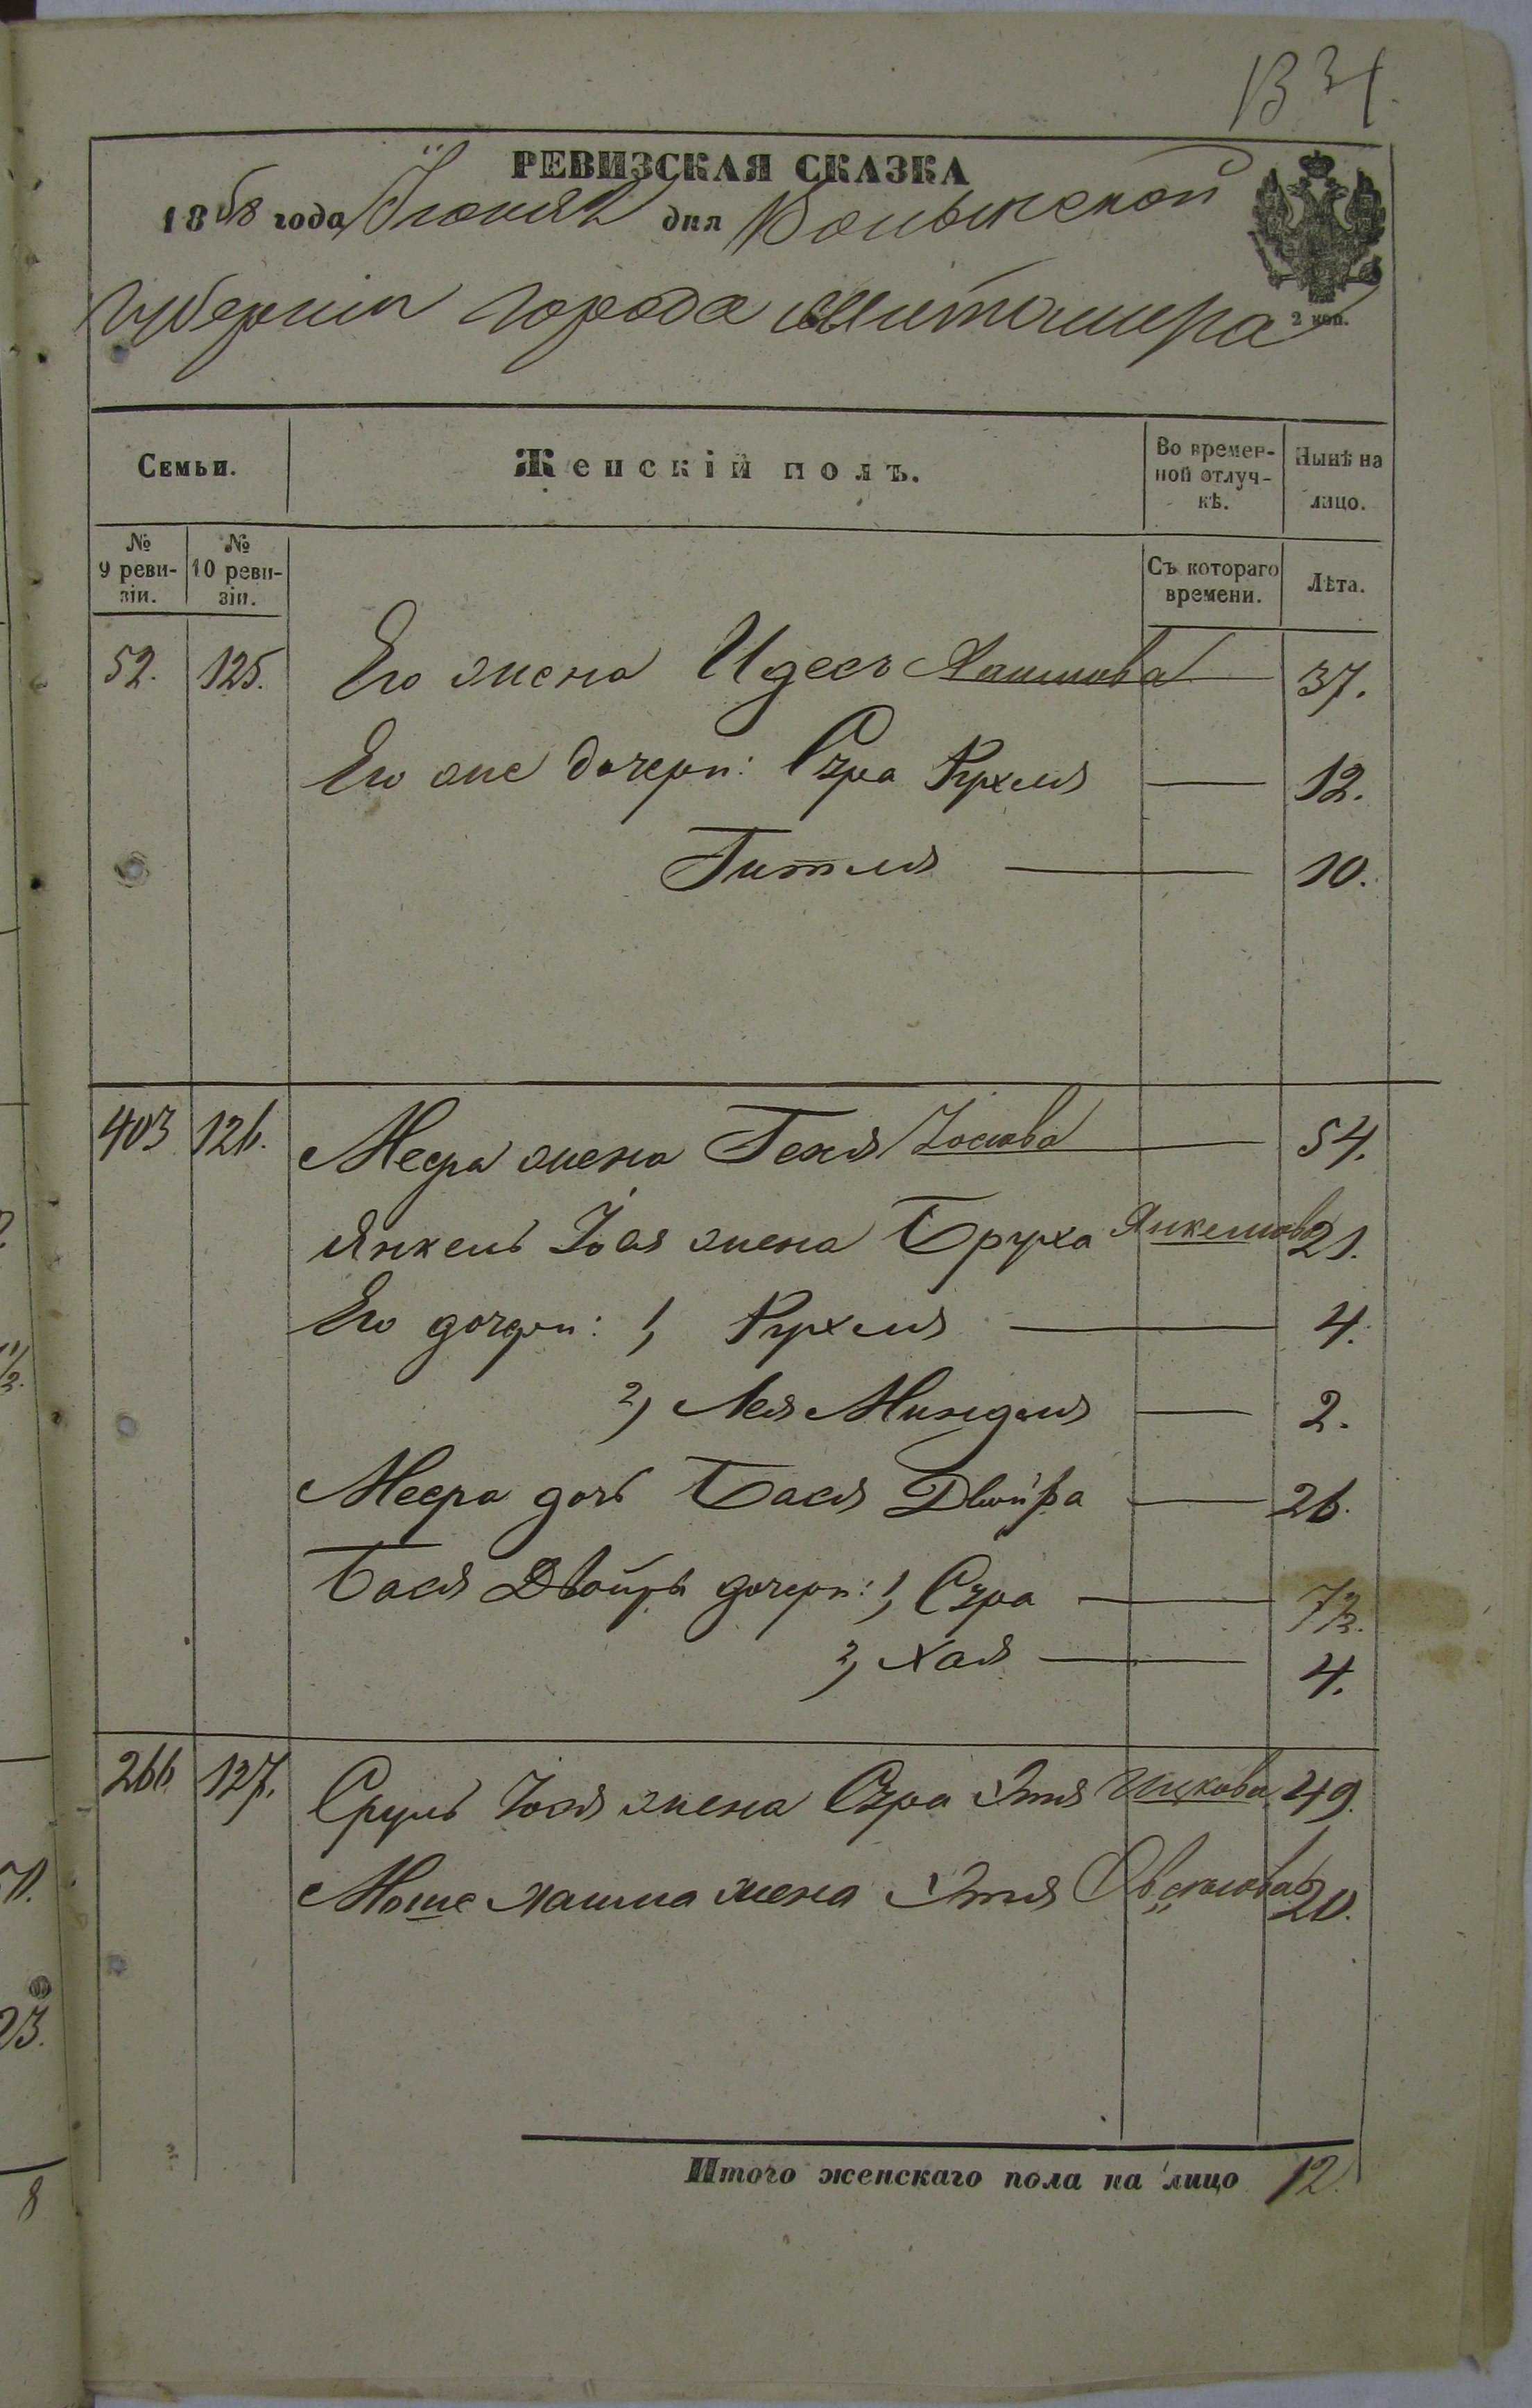 РЕВИЗСКАЯ СКАЗКА
1858 года Іюня дня Волынской
губерніи города Житомира
2 коп.
Семьи.
Женскій полъ.
Во времен-
ной отлуч-
кѣ.
Нынѣ на
лицо.
№
9 реви-
зіи.
№
10 реви-
зіи.
Съ котораго
времени.
Лѣта.
52. 125. Его жена Идесъ Хаимова 37.
Его же дочери: Сура Рухля 12.
Гитля 10.
403 126. Меера жена Геня Іосіова 54.
Янкель Іося жена Бруха Янкелиова 21.
Его дочери: 1, Рухля 4.
2, Лея Миндля 2.
Меера дочь Бася Двойра 26.
Бася Двойры дочери: 1, Сура
2, Хая 4.
266 127. Сруль Іося жена Сура Этя Ицкова 49.
Моше жена Этя 20.
Итого женскаго пола на лицо 12.